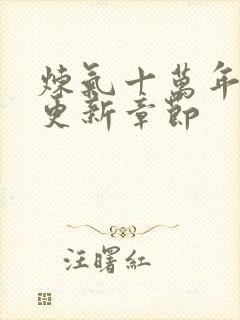 煉氣十萬年
更新章節
汪曙紅